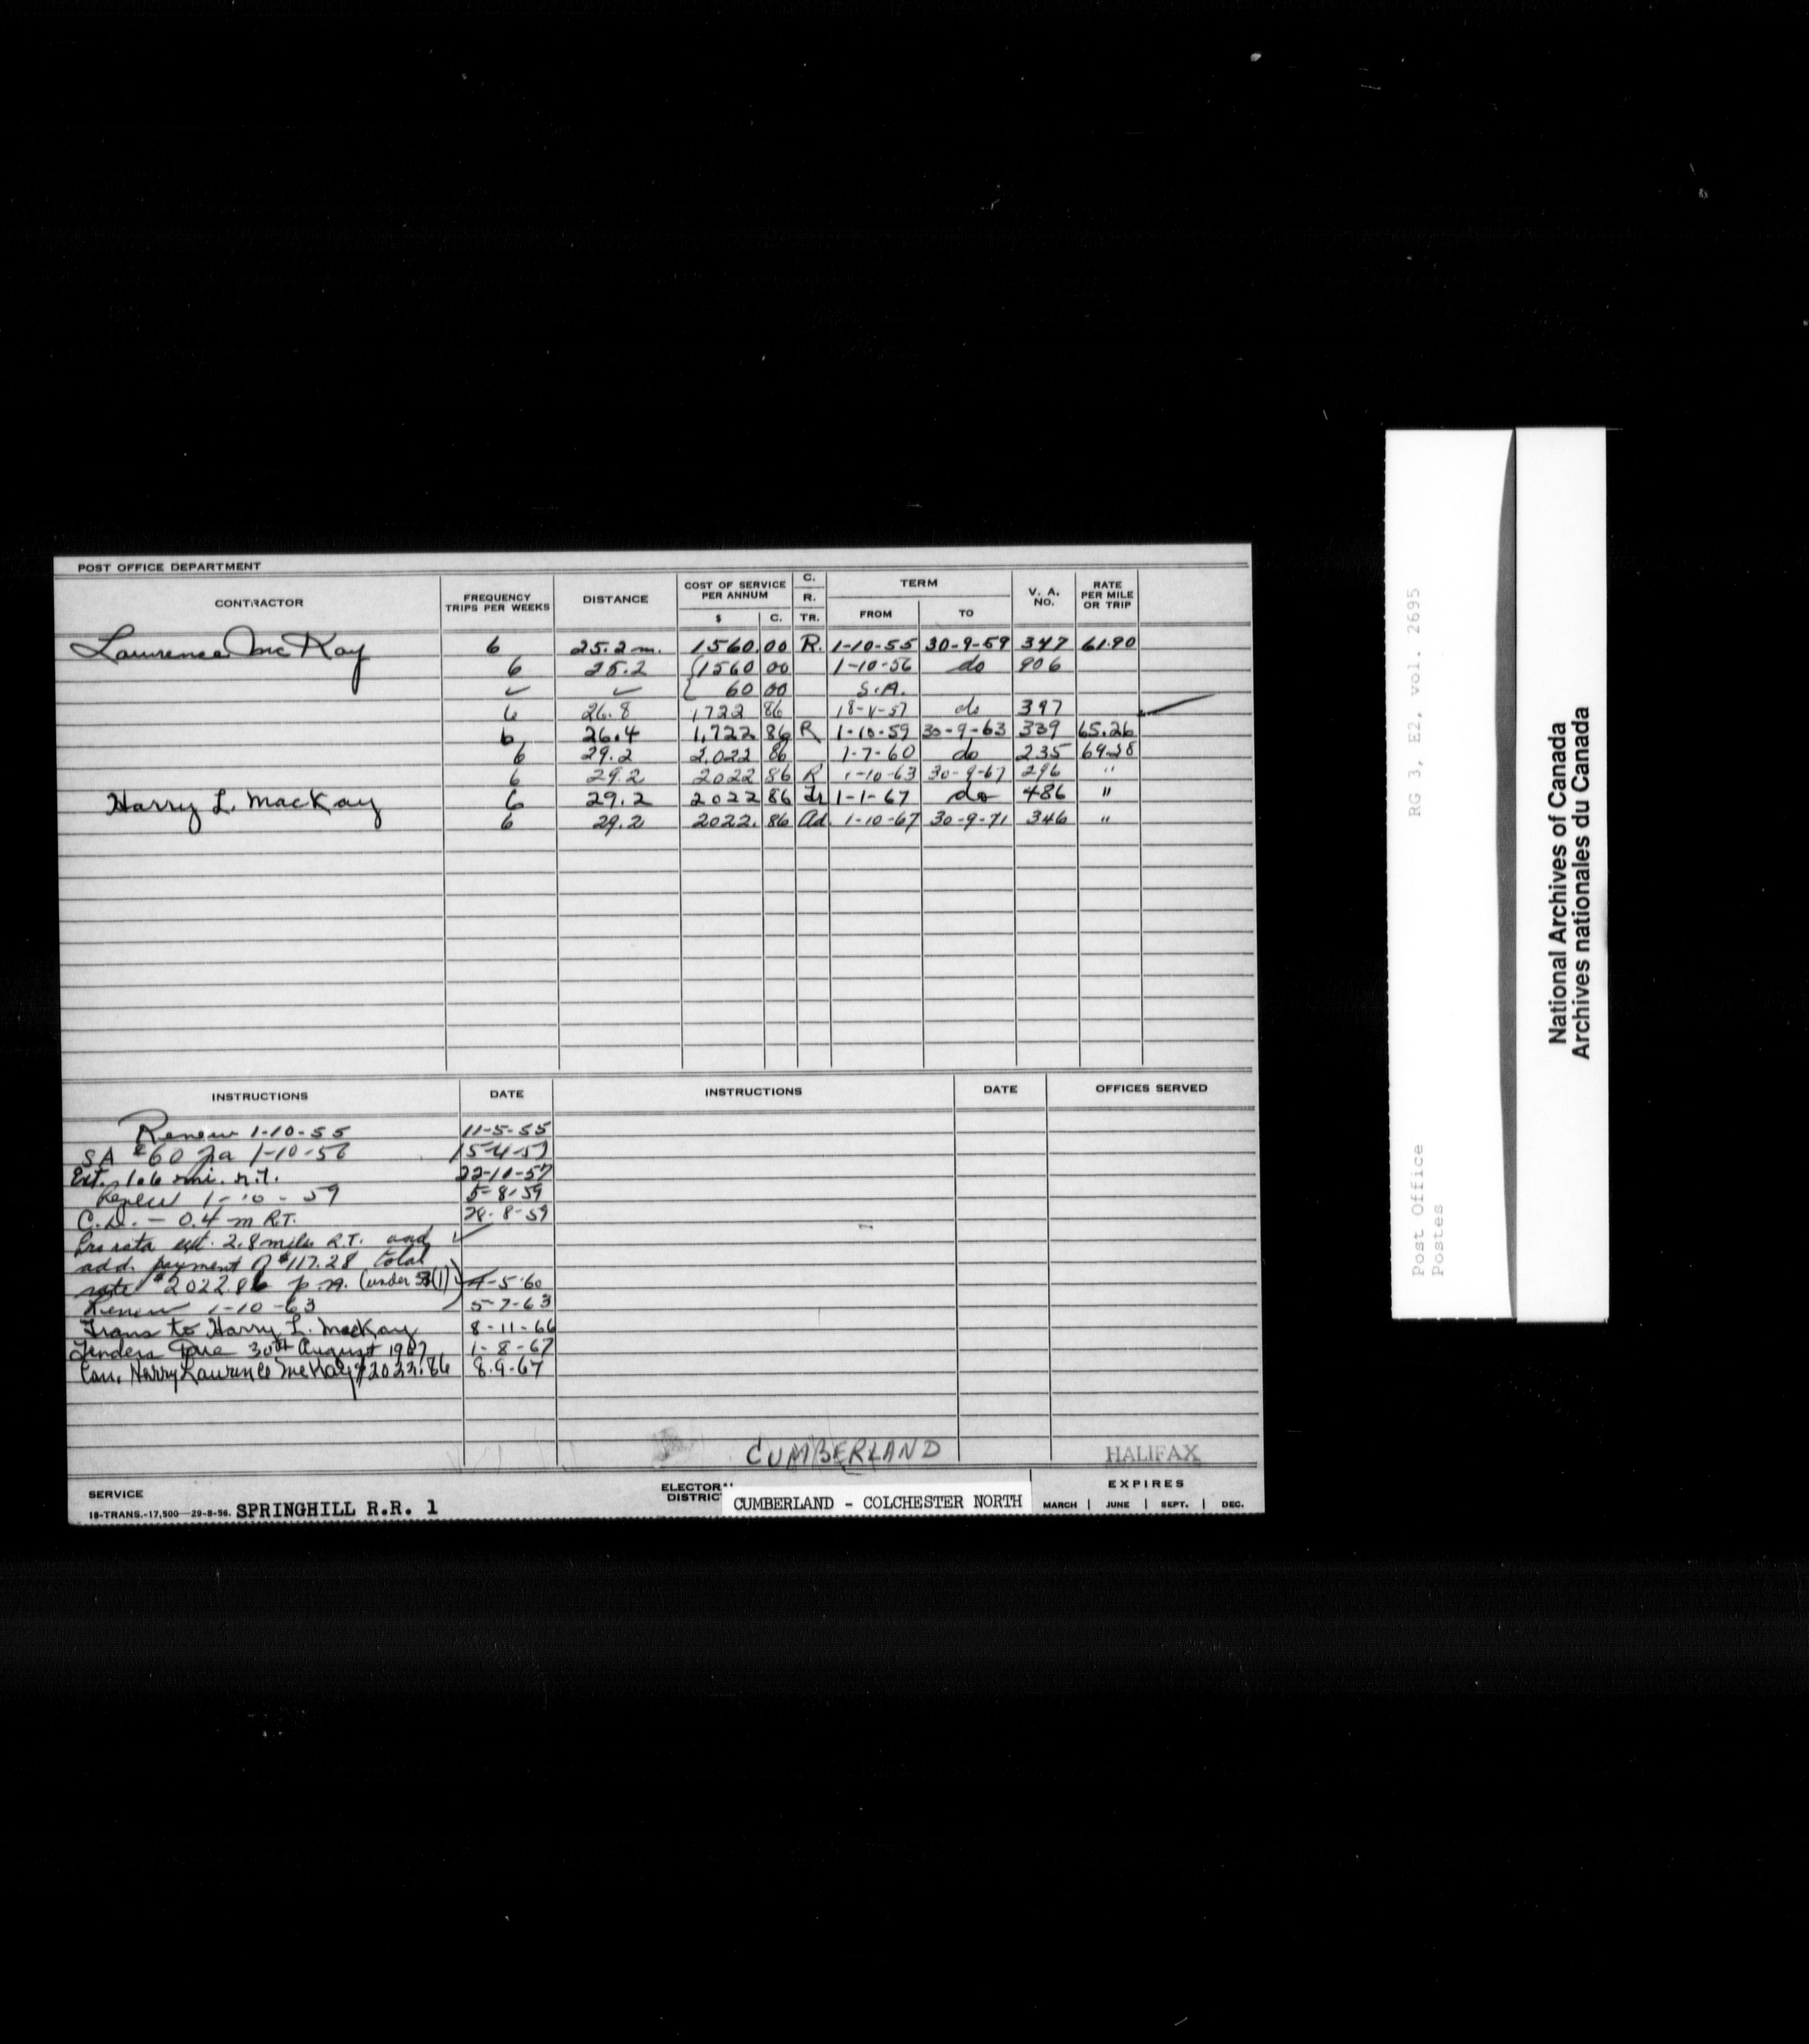 POST OFFICE DEPARTMENT
CONTRACTOR FREQUENCY TRIPS PER WEEKS DISTANCE COST OF SERVICE PER ANNUM $ C. C. R. TR. TERM FROM TO V. A. NO. RATE PER MILE OR TRIP
Lawrence McKay 6 25.2 m. 1560.00 R. 1-10-55 30-9-59 347 61.90
6 25.2 (1560 00 1-10-56 do 906
✓ ✓ ( 60 00 S.A.
6 26.8 1722 86 do 397 ✓
6 26.4 1,722 86 R 1-10-59 30-9-63 339 65.26
6 29.2 2,022 86 1-7-60 do 235 69.28
6 29.2 2022 86 R 1-10-63 30-9-67 296 "
Harry L. MacKay 6 29.2 2022 86 Tr 1-1-67 do 486 "
6 29.2 2022. 86 Ad. 1-10-67 30-9-71 346 "
INSTRUCTIONS DATE INSTRUCTIONS DATE OFFICES SERVED
Renew 1-10-55 11-5-55
SA $60 pa 1-10-56 15-4-57
Ext. 1.6 mi. r.t. 22-10-57
Renew 1-10-59 5-8-59
C.D. - 0.4 m R.T. 28-8-59
Pro rata ext. 2.8 miles R.T. and ✓
add. payment of $117.28 total
rate $2022.86 p.a. (under 4-5-60
Renew 1-10-63 5-7-63
Trans to Harry L. MacKay 8-11-66
Tenders Due 30th August 1967 1-8-67
Con. Harry Lawrence McKay $2022.86 8-9-67
CUMBERLAND HALIFAX
SERVICE SPRINGHILL R.R. 1 ELECTORAL DISTRIC CUMBERLAND - COLCHESTER NORTH EXPIRES
18-TRANS.-17,500—29-8-56. MARCH | JUNE | SEPT. | DEC.
RG 3, E2, vol. 2695
Post Office
Postes
National Archives of Canada
Archives nationales du Canada